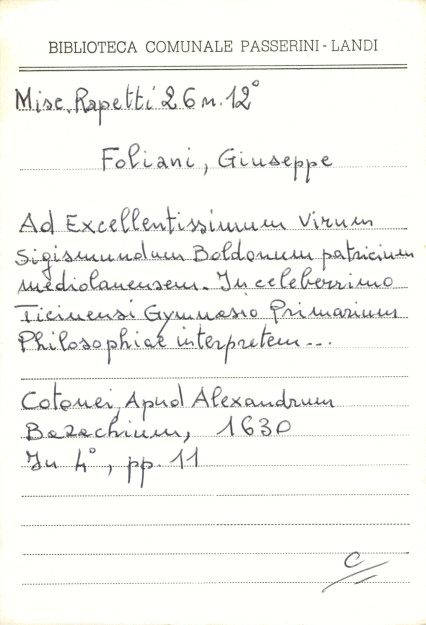 BIBLIOTECA COMUNALE PASSERINI - LANDI
Misc. Rapetti 26 n. 12°
Foliani, Giuseppe
Ad Excellentissimum Virum
Sigismundum Boldonum patricium
mediolanensem. In celeberrimo
Ticinensi Gymnasio Primarium
Philosophiae interpretem...
Cotonei, Apud Alexandrum
Bazachium, 1630
In 4°, pp. 11
C